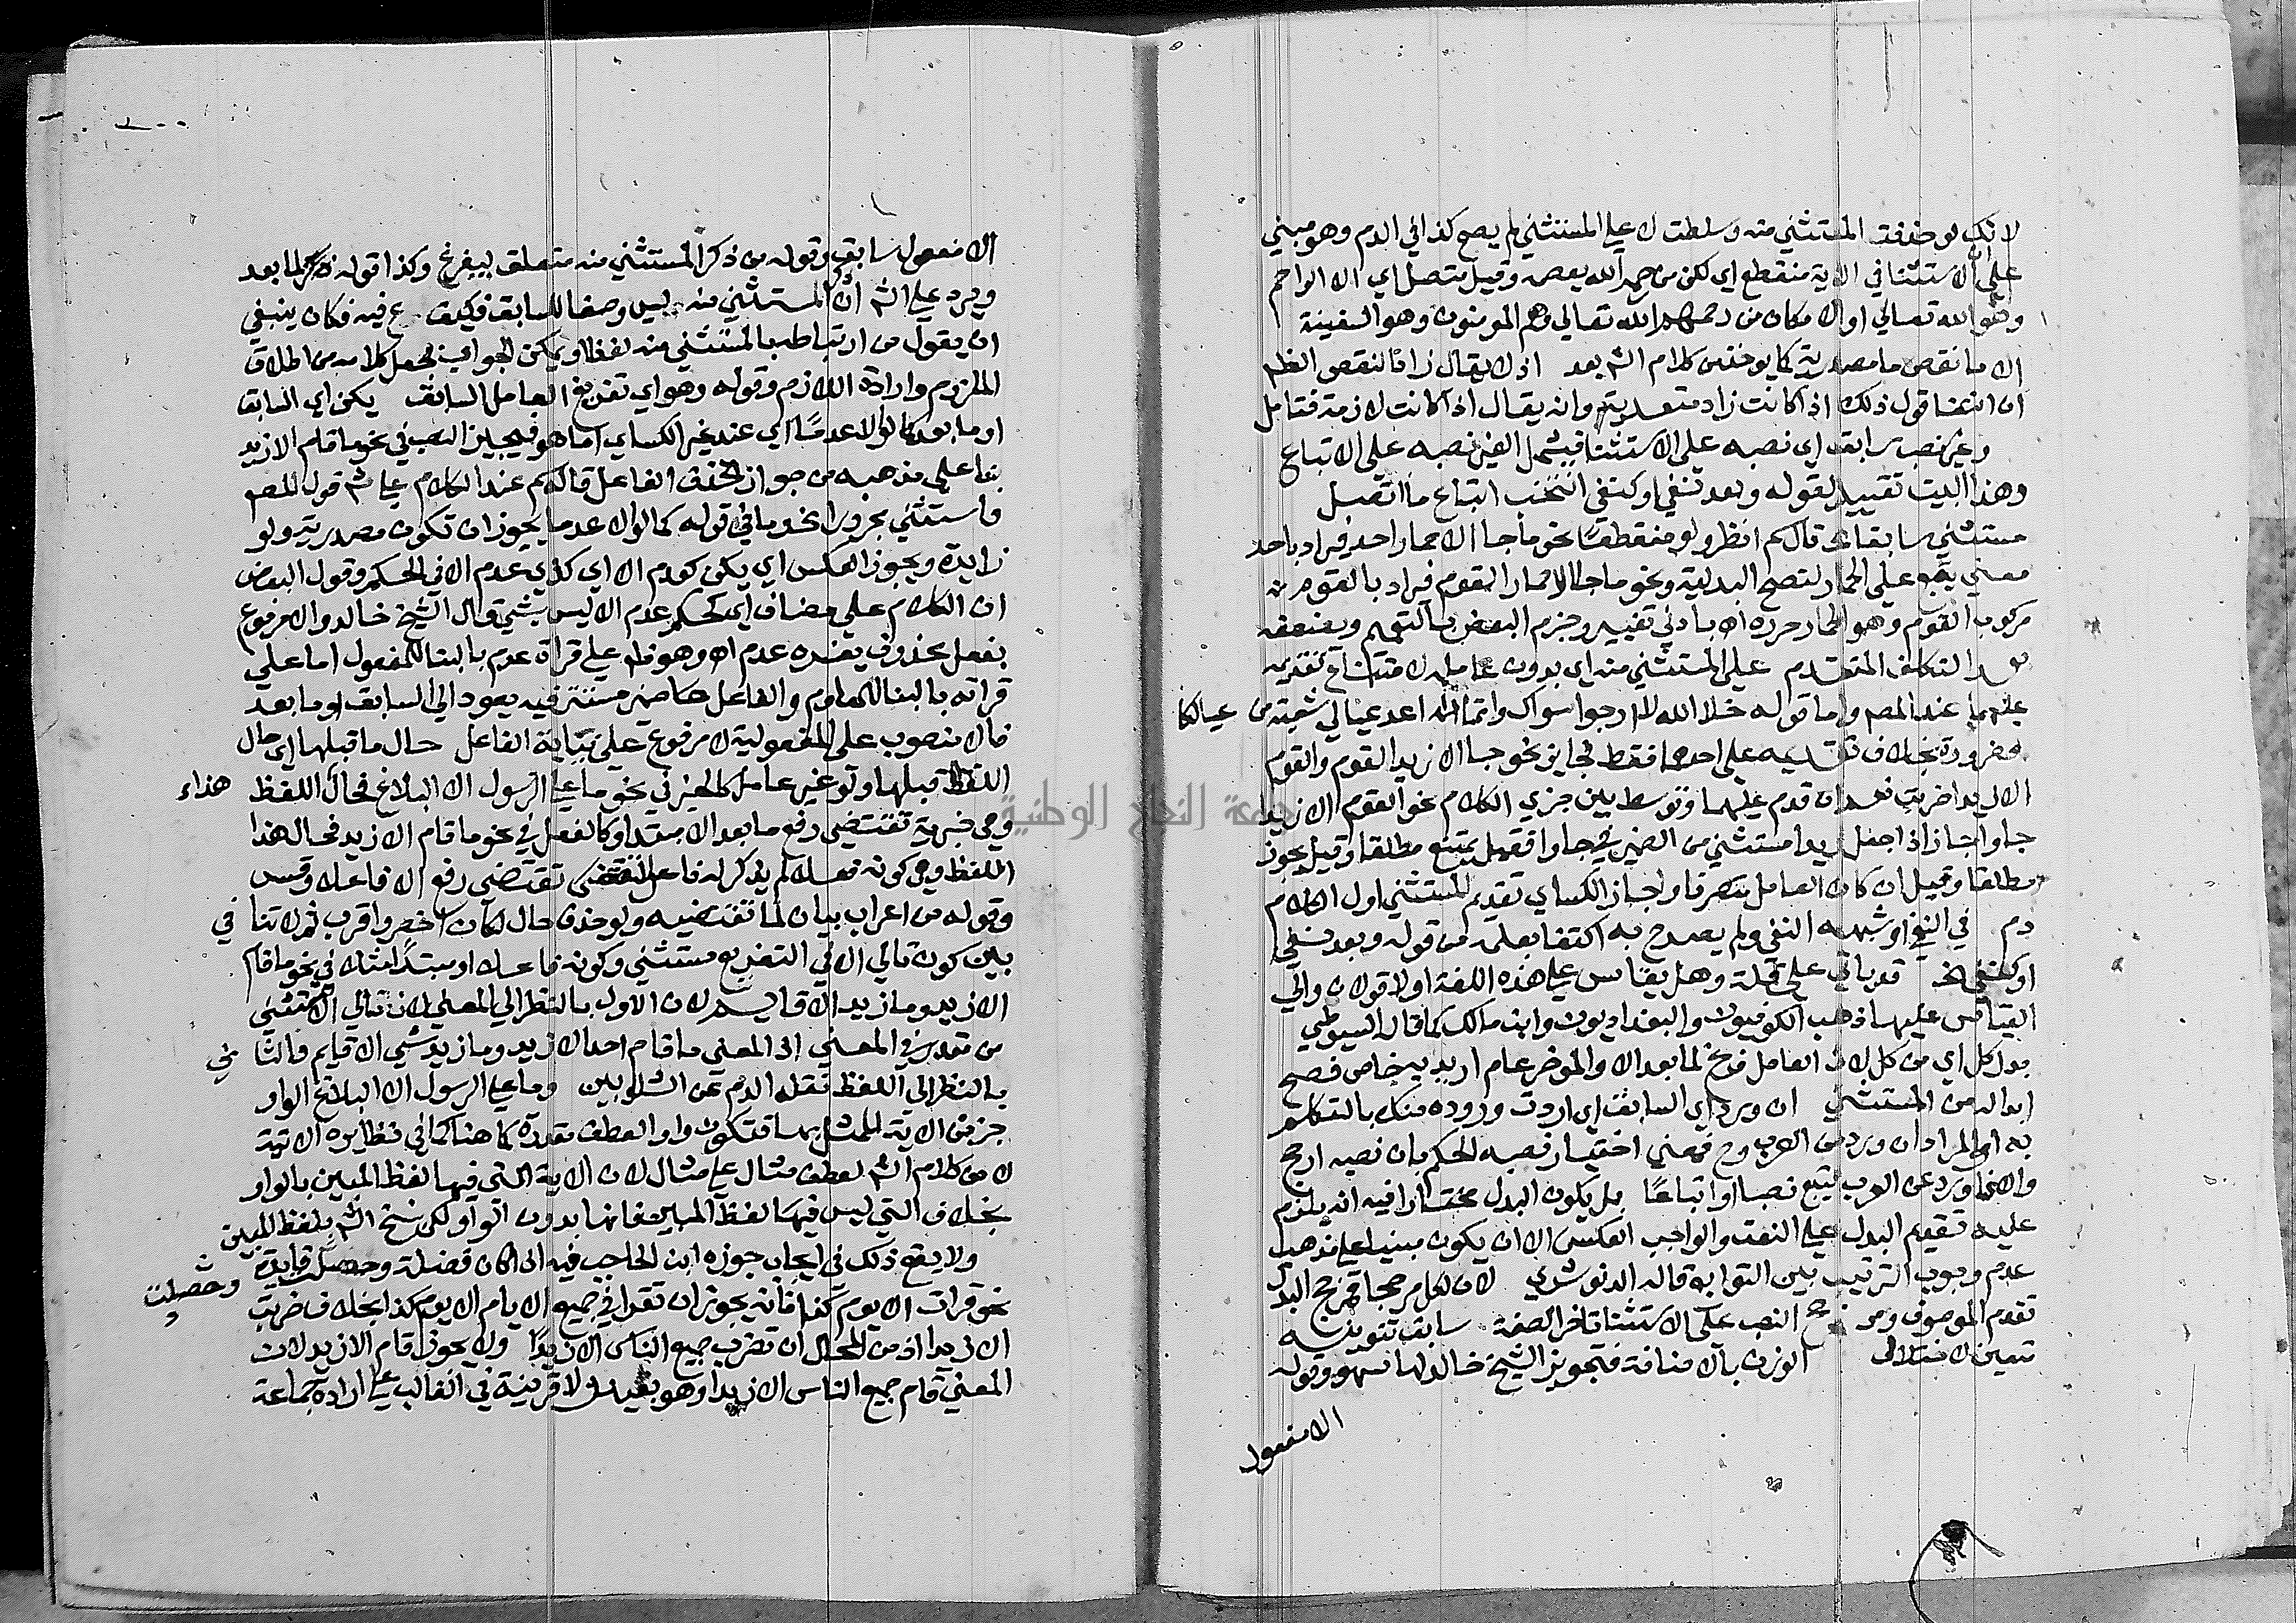 لانك لو حذفت المستثني منه وسلطت لا علي المستثني لم يصح كذا في الدم وهو مبني
علي ان الاستثنا في الاية منقطع اي لكن من رحمه الله يعصمه وقيل متصل اي الا الراحم
وهو الله تعالي او الا مكان من رحمهم الله تعالي وهم المومنون وهو السفينة
الا ما نقص ما مصدرية كما يوخذ من كلام الش بعد اذ لا يقال زاد النقص الظم
ان انتفا قول ذلك اذا كانت زاد متعدية وانه يقال اذا كانت لازمة فتامل
وغير نصب سابق اي نصبه علي الاستثنا فيشمل الغير نصبه علي الاتباع
وهذا البيت تقييد لقوله وبعد نفي او كنفي انتخب اتباع ما اتصل
مستثني سابقا قاله سم انظر ولو منقطعا نحو ما جا الا حمارا احد فيراد باحد
معني يقع علي الحمار لتصح البدلية ونحو ما جا الا حمار القوم فيراد بالقوم
مركوب القوم وهو الحمار حرره اه بادني تغيير وجزم البعض بالتعميم ويضعفه
بعد التكلف المتقدم علي المستثني منه اي بدون عامله لامتناع تقديمه
عليهما عند المص واما قوله خلا الله لا ارجوا سواك وانما اعد عيالي شعبة من عيالكا
ضرورة بخلاف تقديمه علي احدهما فقط فجايز نحو جا الا زيدا القوم والقوم
الا زيدا ضربت فعند ان قدم عليهما وتوسط بين جزئي الكلام نحو القوم الا زيدا
جاوا جاز اذا جعل زيدا مستثني من الضمير في جاوا فقيل يمتنع مطلقا وقيل يجوز
مطلقا وقيل ان كان العامل متصرفا واجاز الكساي تقديم المستثني اول الكلام
دم في النفي او شبهه النفي ولم يصرح به اكتفا بعلمه من قوله وبعد نفي
او كنفي الخ قد ياتي علي قلة وهل يقاس علي هذه اللغة اولا قولان والي
القياس عليها ذهب الكوفيون والبغداديون وابن مالك كما قال السيوطي
بدل كل اي من كل لان العامل فرغ لما بعد الا والموخر عام اريد به خاص فصح
ابداله من المستثني ان ورد اي السابق اي اردت وروده منك بالتكلم
به او المراد ان ورد من العرب وح فمعني اختيار نصبه الحكم بان نصبه ارجح
والا فما ورد عن العرب يتبع نصبا او اتباعا بل يكون البدل مختارا فيه انه يلزم
عليه تقديم البدل علي النعت والواجب العكس الا ان يكون مبنيا علي مذهب
عدم وجوب الترتيب بين التوابع قاله الدنوشري لان لكل مرجحا فمرجح البدل
تقدم الموصوف ومرجح النصب علي الاستثنا تاخر الصفة سابق تنوينه
تعين لاختلال الوزن بالاضافة فتجويز الشيخ خالد لها سهو وقوله
الا مفعول
الا مفعول سابق وقوله من ذكر المستثني منه متعلق بيفرغ وكذا قوله لما بعد
ويرد علي الش ان ذكر المستثني منه ليس وصفا للسابق فكيف فيه فكان ينبغي
ان يقول من ارتباطه بالمستثني منه لفظا ويمكن الجواب بجعل كلامه من اطلاق
الملزوم وارادة اللازم وقوله وهو اي تفريغ العامل السابق يكن اي السابق
او ما بعد كما لو الا عدما اي عند غير الكساي اما هو فيجيز النصب في نحو ما قام الا زيد
بنا علي مذهبه من جواز حذف الفاعل قاله سم عند الكلام علي قول المص
واستثني مجرورا الخ وما في قوله كما لو الا عدما يجوز ان تكون مصدرية ولو
زايدة ويجوز العكس اي يكن كعدم الا اي كذي عدم الا في الحكم وقول البعض
ان الكلام علي مضاف اي كحكم عدم الا ليس بشي قال الشيخ خالد والا مرفوع
بفعل محذوف يفسره عدم اه وهو ظ علي قراة عدم بالبنا للمفعول اما علي
قراته بالبنا للمعلوم والفاعل ضمير مستتر فيه يعود الي السابق او ما بعد
فالا منصوب علي المفعولية لا مرفوع علي نيابة الفاعل حال ما قبلها اي حال
اللفظ قبلها ولو غير عامل كالخبر في نحو ما علي الرسول الا البلاغ فحال اللفظ هذا
وهي خبرية تقتضي رفع ما بعد الا مبتدا وكالفعل في نحو ما قام الا زيد فحال هذا
اللفظ وهي كونه فعلا لم يذكر له فاعل تقتضي رفع الا فاعلا وقس
وقوله من اعراب بيان لما تقتضيه ولو حذف حال لكان اخصر واقرب ثم لا تنافي
بين كون تالي الا في التفريغ مستثني وكونه فاعلا او مبتدا مثلا في نحو ما قام
الا زيد وما زيد الا قايم لان الاول بالنظر الي المعني لان تالي الا مستثني
من مقدر في المعني اذ المعني ما قام احد الا زيد وما زيد شي الا قايم والثاني
بالنظر الي اللفظ نقله الدم عن الشلوبين وما علي الرسول الا البلاغ الواو
جزء من الاية الممثل بها فتكون واو العطف مقدرة كما هنا كما في نظايره الاتية
لا من كلام الش لعطف مثال علي مثال لان الاية التي فيها لفظ المبين بالواو
بخلاف التي ليس فيها لفظ المبين فانها بدون الواو لكن نسخ الش بلفظ المبين
ولا يقع ذلك في ايجاب جوزه ابن الحاجب فيه ان كان فضلة وحصلت فايدة وحصلت
نحو قرات الا يوم كذا فانه يجوز ان تقرا في جميع الايام الا يوم كذا بخلاف ضربت
الا زيدا اذ من المحال ان تضرب جميع الناس الا زيدا ولا يجوز قام الا زيد لان
المعني قام جميع الناس الا زيدا وهو بعيد ولا قرينة في الغالب علي ارادة جماعة
جامعة النجاح الوطنية